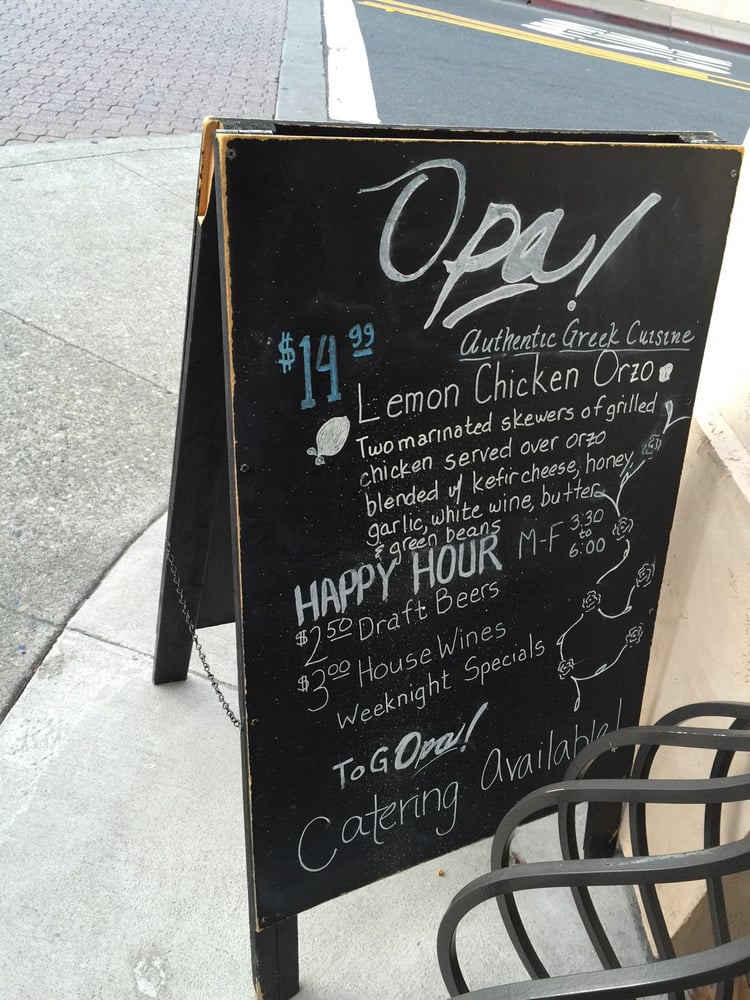 Opa!
Authentic Greek Cuisine
$14.99
Lemon Chicken Orzo
Two marinated skewers of grilled
chicken served over orzo
blended w/ kefir cheese, honey,
garlic, white wine, butter
& green beans
HAPPY HOUR M-F 3:30 to 6:00
$2.50 Draft Beers
$3.00 House Wines
Weeknight Specials
To GOpa!
Catering Available!